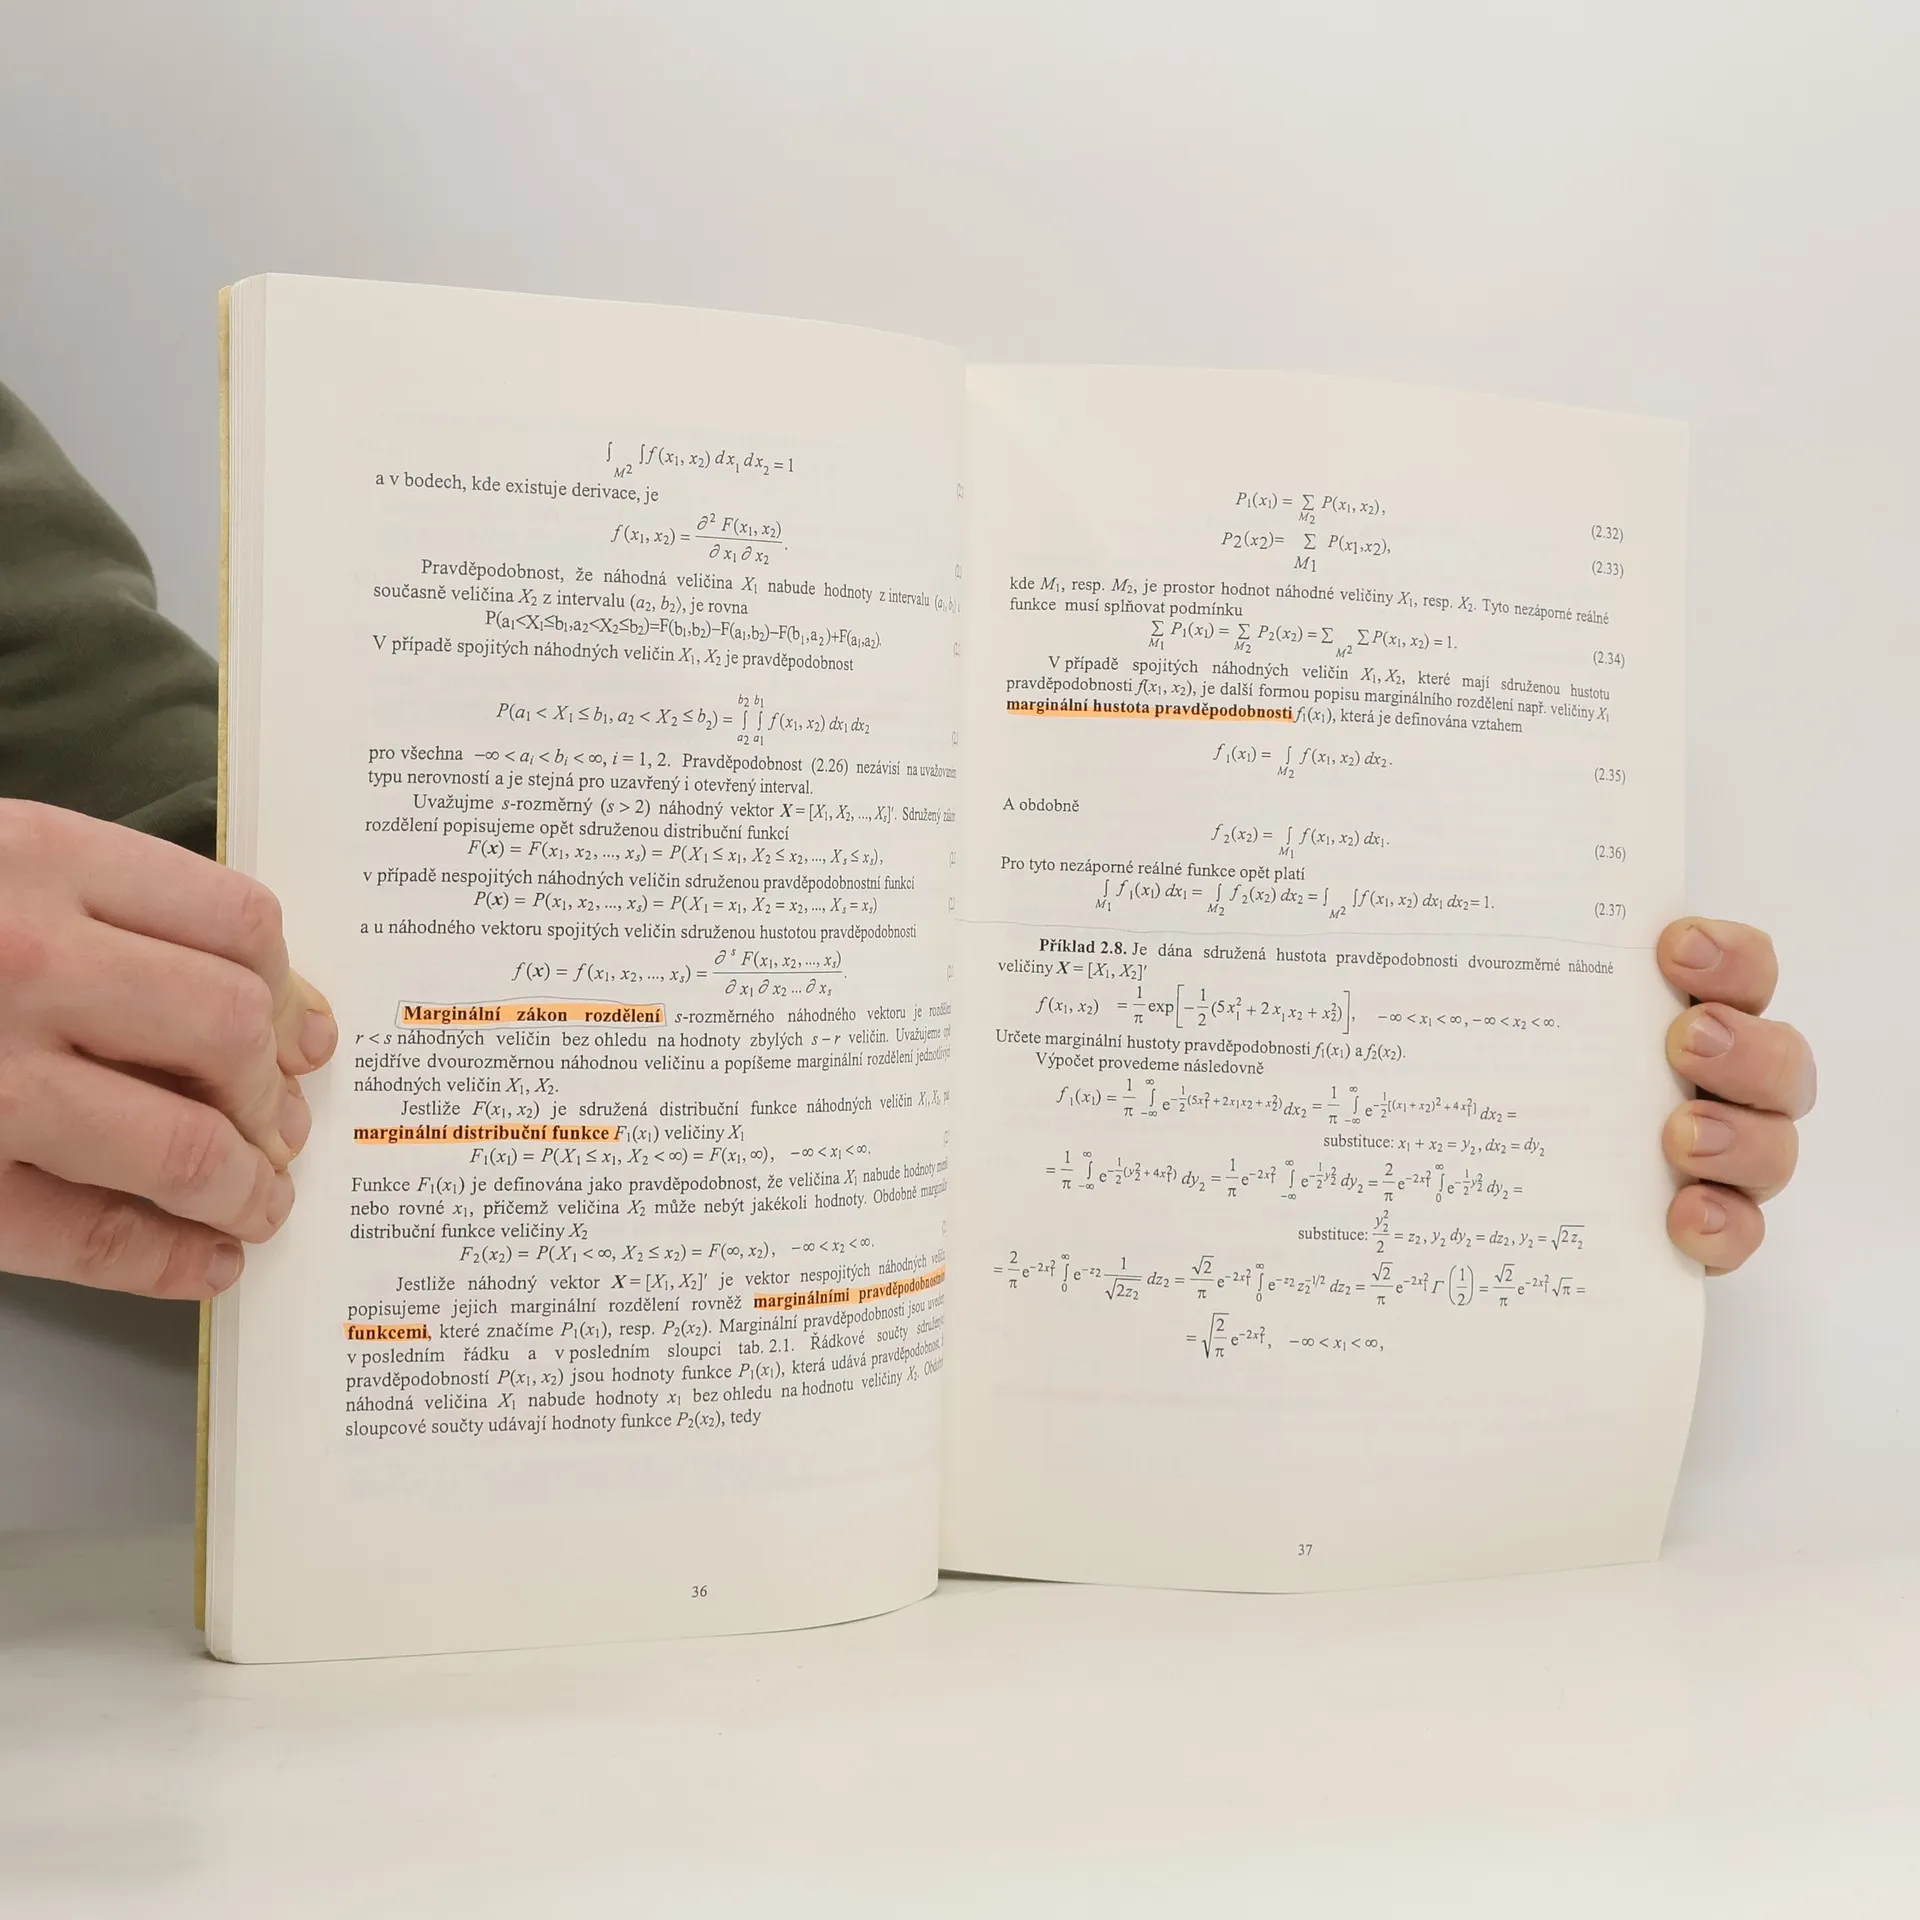 ∫_{M²} ∫ f(x₁, x₂) dx₁ dx₂ = 1
a v bodech, kde existuje derivace, je
f(x₁, x₂) = ∂² F(x₁, x₂) / ∂x₁ ∂x₂ .
Pravděpodobnost, že náhodná veličina X₁ nabude hodnoty z intervalu (a₁, b₁⟩
současně veličina X₂ z intervalu (a₂, b₂⟩, je rovna
P(a₁<X₁≤b₁,a₂<X₂≤b₂)=F(b₁,b₂)−F(a₁,b₂)−F(b₁,a₂)+F(a₁,a₂).
V případě spojitých náhodných veličin X₁, X₂ je pravděpodobnost
P(a₁ < X₁ ≤ b₁, a₂ < X₂ ≤ b₂) = ∫_{a₂}^{b₂} ∫_{a₁}^{b₁} f(x₁, x₂) dx₁ dx₂
pro všechna −∞ < aᵢ < bᵢ < ∞, i = 1, 2. Pravděpodobnost (2.26) nezávisí na
typu nerovností a je stejná pro uzavřený i otevřený interval.
Uvažujme s-rozměrný (s > 2) náhodný vektor X = [X₁, X₂, ..., Xₛ]′. Sdružený
rozdělení popisujeme opět sdruženou distribuční funkcí
F(x) = F(x₁, x₂, ..., xₛ) = P(X₁ ≤ x₁, X₂ ≤ x₂, ..., Xₛ ≤ xₛ),
v případě nespojitých náhodných veličin sdruženou pravděpodobnostní funkcí
P(x) = P(x₁, x₂, ..., xₛ) = P(X₁ = x₁, X₂ = x₂, ..., Xₛ = xₛ)
a u náhodného vektoru spojitých veličin sdruženou hustotou pravděpodobnosti
f(x) = f(x₁, x₂, ..., xₛ) = ∂ˢ F(x₁, x₂, ..., xₛ) / ∂x₁ ∂x₂ ... ∂xₛ .
Marginální zákon rozdělení s-rozměrného náhodného vektoru je
r < s náhodných veličin bez ohledu na hodnoty zbylých s − r veličin. Uvažujeme
nejdříve dvourozměrnou náhodnou veličinu a popíšeme marginální rozdělení jednotlivých
náhodných veličin X₁, X₂.
Jestliže F(x₁, x₂) je sdružená distribuční funkce náhodných veličin X₁, X₂,
marginální distribuční funkce F₁(x₁) veličiny X₁
F₁(x₁) = P(X₁ ≤ x₁, X₂ < ∞) = F(x₁, ∞), −∞ < x₁ < ∞.
Funkce F₁(x₁) je definována jako pravděpodobnost, že veličina X₁ nabude hodnoty
nebo rovné x₁, přičemž veličina X₂ může nebýt jakékoli hodnoty. Obdobně
distribuční funkce veličiny X₂
F₂(x₂) = P(X₁ < ∞, X₂ ≤ x₂) = F(∞, x₂), −∞ < x₂ < ∞.
Jestliže náhodný vektor X = [X₁, X₂]′ je vektor nespojitých náhodných
popisujeme jejich marginální rozdělení rovněž marginálními
funkcemi, které značíme P₁(x₁), resp. P₂(x₂). Marginální pravděpodobnosti jsou
v posledním řádku a v posledním sloupci tab. 2.1. Řádkové součty
pravděpodobností P(x₁, x₂) jsou hodnoty funkce P₁(x₁), která udává
náhodná veličina X₁ nabude hodnoty x₁ bez ohledu na hodnotu veličiny X₂.
sloupcové součty udávají hodnoty funkce P₂(x₂), tedy
36
P₁(x₁) = Σ_{M₂} P(x₁, x₂), (2.32)
P2(x2)= Σ_{M1} P(x1,x2), (2.33)
kde M₁, resp. M₂, je prostor hodnot náhodné veličiny X₁, resp. X₂. Tyto nezáporné reálné
funkce musí splňovat podmínku
Σ_{M₁} P₁(x₁) = Σ_{M₂} P₂(x₂) = Σ_{M²} Σ P(x₁, x₂) = 1. (2.34)
V případě spojitých náhodných veličin X₁, X₂, které mají sdruženou hustotu
pravděpodobnosti f(x₁, x₂), je další formou popisu marginálního rozdělení např. veličiny X₁
marginální hustota pravděpodobnosti f₁(x₁), která je definována vztahem
f₁(x₁) = ∫_{M₂} f(x₁, x₂) dx₂. (2.35)
A obdobně
f₂(x₂) = ∫_{M₁} f(x₁, x₂) dx₁. (2.36)
Pro tyto nezáporné reálné funkce opět platí
∫_{M₁} f₁(x₁) dx₁ = ∫_{M₂} f₂(x₂) dx₂ = ∫_{M²} ∫ f(x₁, x₂) dx₁ dx₂ = 1. (2.37)
Příklad 2.8. Je dána sdružená hustota pravděpodobnosti dvourozměrné náhodné
veličiny X = [X₁, X₂]′
f(x₁, x₂) = 1/π exp[−1/2 (5x₁² + 2x₁x₂ + x₂²)], −∞ < x₁ < ∞, −∞ < x₂ < ∞.
Určete marginální hustoty pravděpodobnosti f₁(x₁) a f₂(x₂).
Výpočet provedeme následovně
f₁(x₁) = 1/π ∫_{−∞}^{∞} e^{−1/2(5x₁² + 2x₁x₂ + x₂²)} dx₂ = 1/π ∫_{−∞}^{∞} e^{−1/2[(x₁ + x₂)² + 4x₁²]} dx₂ =
substituce: x₁ + x₂ = y₂, dx₂ = dy₂
= 1/π ∫_{−∞}^{∞} e^{−1/2(y₂² + 4x₁²)} dy₂ = 1/π e^{−2x₁²} ∫_{−∞}^{∞} e^{−1/2 y₂²} dy₂ = 2/π e^{−2x₁²} ∫_{0}^{∞} e^{−1/2 y₂²} dy₂ =
substituce: y₂²/2 = z₂, y₂ dy₂ = dz₂, y₂ = √(2z₂)
= 2/π e^{−2x₁²} ∫_{0}^{∞} e^{−z₂} 1/√(2z₂) dz₂ = √2/π e^{−2x₁²} ∫_{0}^{∞} e^{−z₂} z₂^{−1/2} dz₂ = √2/π e^{−2x₁²} Γ(1/2) = √2/π e^{−2x₁²} √π =
= √(2/π) e^{−2x₁²}, −∞ < x₁ < ∞,
37